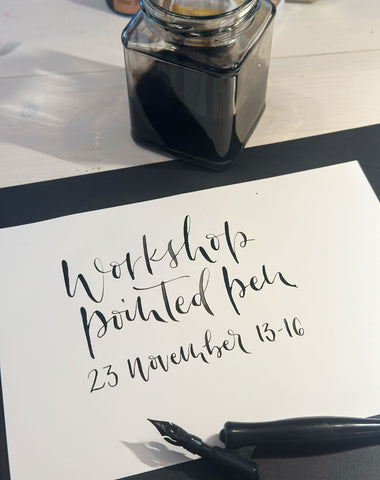 Workshop
pointed pen
23 november 13-16